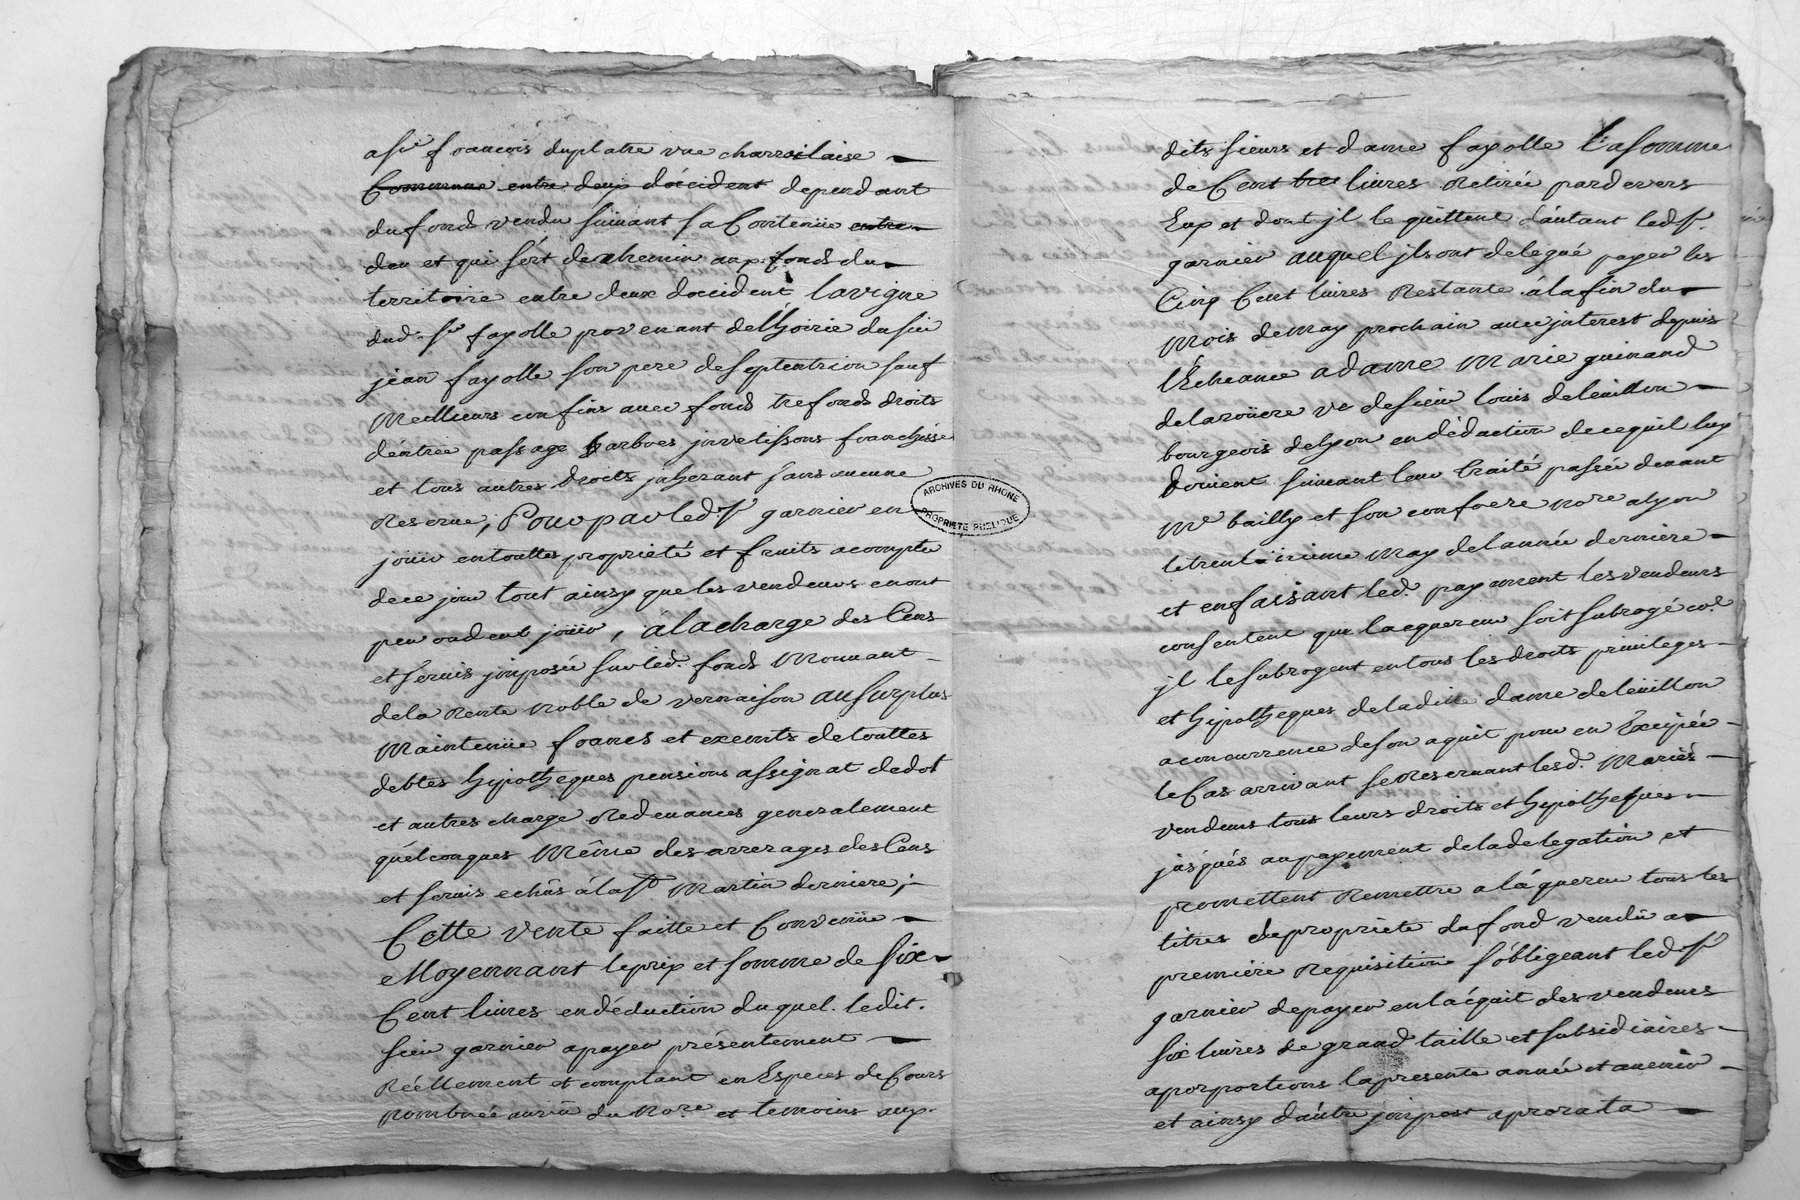 a sr francois duplatre une charroilaise
Commune entre deux d'occident dependant
du fond vendu suivant sa Contenüe entre
deu et qui sért de chemin aux fonds du
territoire entre deux doccident lavigne
dud. sr fayolle provenant de Lhoirie du sieu
jean fayolle son pere de septentrion sauf
Meilleurs confins avec fonds trefonds droits
déntree passage arbres juvetissons franchise
et tous autres Droits jnherant sans aucune
Reserve, Pour par led. Sr garnier en
joüir en touttes proprieté et fruits a compter
de ce jour tout ainsy que les vendeurs en ont
peu ou deub joüir, á la charge des Cens
et servis jmposée sur led. fonds Mouvant
de la Rente Noble de vernaison au surplus
Maintenüe francs et exempts de touttes
debtes hipotheques pensions assignat de dot
et autres charge Redevances generalement
quélconques Mème des arrerages des Cens
et servis echüs á la St Martin derniere;
Cette vente faitte et Convenüe
Moyennant le prix et somme de Six
Cent livres en déduction du quel. ledit.
sieu garnier a payer présentement
Réellement et comptant en Especes de Cours
nombrée au vü du Nore et temoins aux.
dits sieurs et dame fayolle la somme
de Cent tres livres Retirée par devers
Eux et dont jl le quittent d'áutant led Sr.
garnier auquel jls ont delegué payer les
Cinq Cent livres Restante á la fin du
Mois de May prochain avec jnterest depuis
l'Écheance a dame Marie guinand
de la roüere ve de sieu louis de leüillon
bourgeois de lyon en déduction de ce quil luy
doivent suivant leur traité passée devant
Me bailly et son confrere Nore a lyon
le trente iéme May de l année derniere
et en faisant led. payement les vendeurs
consentent que l acquereur soit subrogé co.e
jl le subrogent en tous les droits privileges
et hipotheques de la ditte dame de leüillon
a concurrence de son aquit pour en Excipée
le Cas arrivant se Reservant lesd. Mariés
vendeurs tous leurs droits et hipotheques
jusqués au payement de la delegation et
promettent Remettre a l áquereur tous les
titres de proprieté du fond vendü a
premiere Requisition s'obligeant led Sr
garnier de payer en l acquit des vendeurs
six livres de grand taille et subsidiaires
a porportions la presente année et avenir
et ainsy d'áutre jmpost a prorata
ARCHIVES DU RHONE
PROPRIETE PUBLIQUE